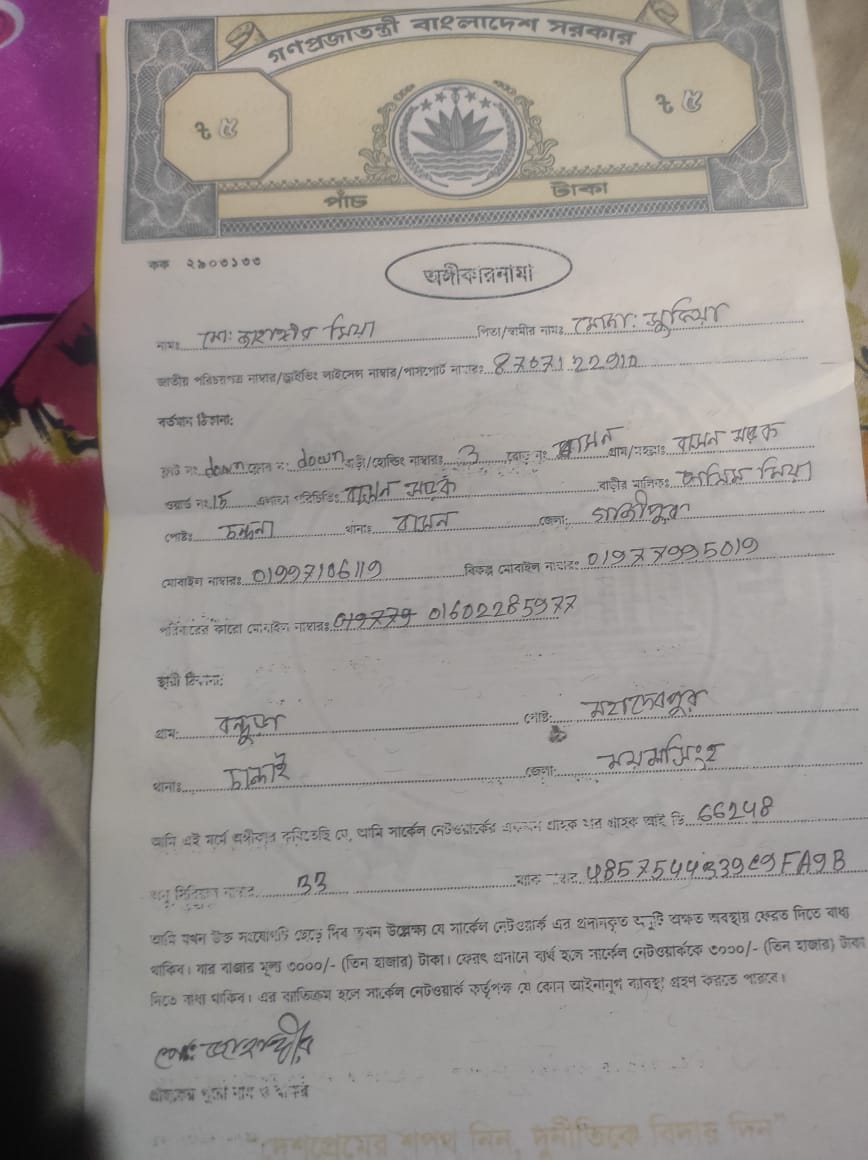 গণপ্রজাতন্ত্রী বাংলাদেশ সরকার
৳ ৫ ৳ ৫
পাঁচ টাকা
কক ২৯০৩১৩৩
অঙ্গীকারনামা
নামঃ মো: জাহাঙ্গীর মিয়া পিতা/স্বামীর নামঃ মোছা: সুফিয়া
জাতীয় পরিচয়পত্র নাম্বার/ড্রাইভিং লাইসেন্স নাম্বার/পাসপোর্ট নাম্বারঃ
বর্তমান ঠিকানা:
ফ্লাট নং: down ফ্লোর নং: down বাড়ী/হোল্ডিং নাম্বারঃ 3 রোড নং: বাসন গ্রাম/মহল্লাঃ বাসন সড়ক
ওয়ার্ড নং: 15 এলাকা পরিচিতিঃ বাসন সড়ক বাড়ীর মালিকঃ মিয়া
পোষ্টঃ চন্দনা থানাঃ বাসন জেলা: গাজীপুর
মোবাইল নাম্বারঃ 01997106119 বিকল্প মোবাইল নাম্বারঃ 01977995019
পরিবারের কারো মোবাইল নাম্বারঃ 019779 01602285977
স্থায়ী ঠিকানা:
গ্রাম: পোষ্ট: মহাদেবপুর
থানাঃ জেলা: ময়মনসিংহ
আমি এই মর্মে অঙ্গীকার করিতেছি যে, আমি সার্কেল নেটওয়ার্কের একজন গ্রাহক যার গ্রাহক আই ডি 66248
অনু সিরিয়াল নাম্বার 33 ম্যাক নাম্বার 4857544339C9FA9B
আমি যখন উক্ত সংযোগটি ছেড়ে দিব তখন উল্লেখ্য যে সার্কেল নেটওয়ার্ক এর প্রদানকৃত যন্ত্রটি অক্ষত অবস্থায় ফেরত দিতে বাধ্য
থাকিব। যার বাজার মূল্য ৩০০০/- (তিন হাজার) টাকা। ফেরৎ প্রদানে ব্যর্থ হলে সার্কেল নেটওয়ার্ককে ৩০০০/- (তিন হাজার) টাকা
দিতে বাধ্য থাকিব। এর ব্যতিক্রম হলে সার্কেল নেটওয়ার্ক কর্তৃপক্ষ যে কোন আইনানুগ ব্যবস্থা গ্রহণ করতে পারবে।
মো: জাহাঙ্গীর
গ্রাহকের পুরো নাম ও স্বাক্ষর
"দেশপ্রেমের শপথ নিন, দুর্নীতিকে বিদায় দিন"